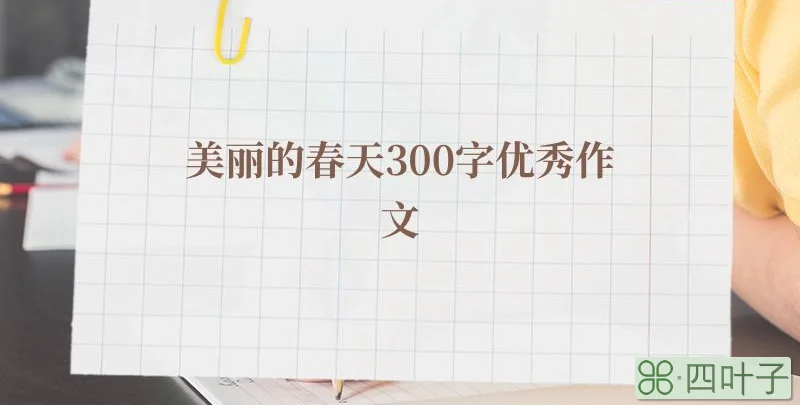 美丽的春天300字优秀作
文
四叶子